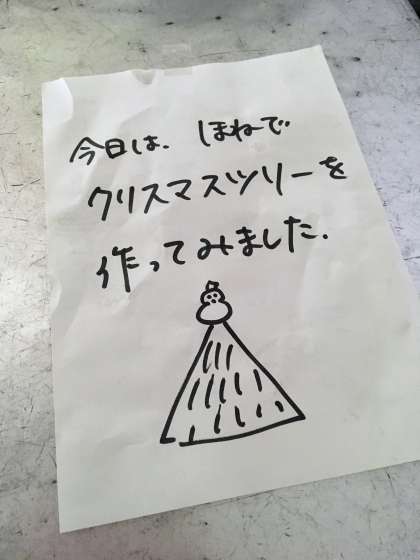 今日は、ほねで
クリスマスツリーを
作ってみました.